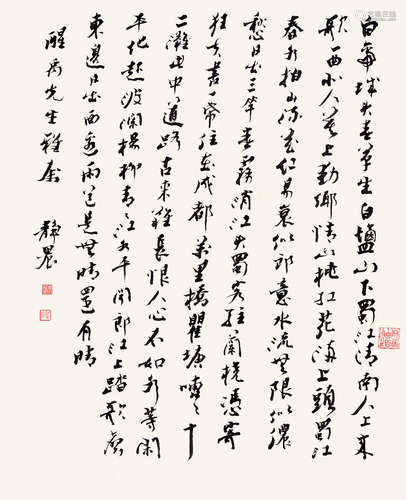 白帝城头春草生白鹽山下蜀江清南人上来
歌一曲北人莫上動鄉情山桃红花滿上頭蜀江
春水拍山流花红易衰似郎意水流無限似儂
愁日出三竿春霧消江头蜀客駐蘭橈憑寄
狂夫書一帋住在成都萬里橋瞿塘嘈々十
二灘此中道路古来難長恨人心不如水等闲
平地起波瀾楊柳青々江水平聞郎江上踏歌聲
東邊日出西邊雨道是無晴還有晴
先生雅屬 靜農